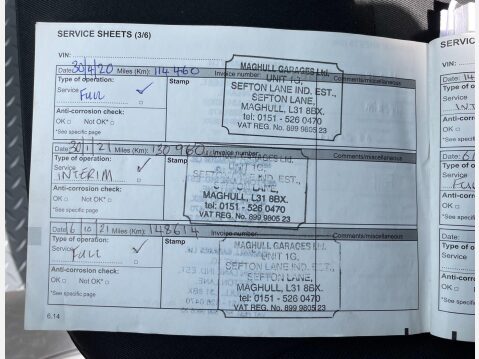 SERVICE SHEETS (3/6)
VIN:
Date: 30/9/20 Miles (Km): 114460 Invoice number:
Type of operation: Stamp Comments/miscellaneous
Service
FULL ✓
Anti-corrosion check:
OK □ Not OK* □
*See specific page
MAGHULL GARAGES Ltd.
UNIT 1G,
SEFTON LANE IND. EST.,
SEFTON LANE,
MAGHULL, L31 8BX.
tel: 0151 - 526 0470
VAT REG. No. 899 9805 23
Date: 30/1/21 Miles (Km): 130960 Invoice number:
Type of operation: Stamp Comments/miscellaneous
Service
INTERIM ✓
Anti-corrosion check:
OK □ Not OK* □
*See specific page
MAGHULL GARAGES Ltd.
UNIT 1G,
SEFTON LANE IND. EST.,
SEFTON LANE,
MAGHULL, L31 8BX.
tel: 0151 - 526 0470
VAT REG. No. 899 9805 23
Date: 6/10/21 Miles (Km): 148614 Invoice number:
Type of operation: Stamp Comments/miscellaneous
Service
FULL ✓
Anti-corrosion check:
OK □ Not OK* □
*See specific page
MAGHULL GARAGES Ltd.
UNIT 1G,
SEFTON LANE IND. EST.,
SEFTON LANE,
MAGHULL, L31 8BX.
tel: 0151 - 526 0470
VAT REG. No. 899 9805 23
6.14